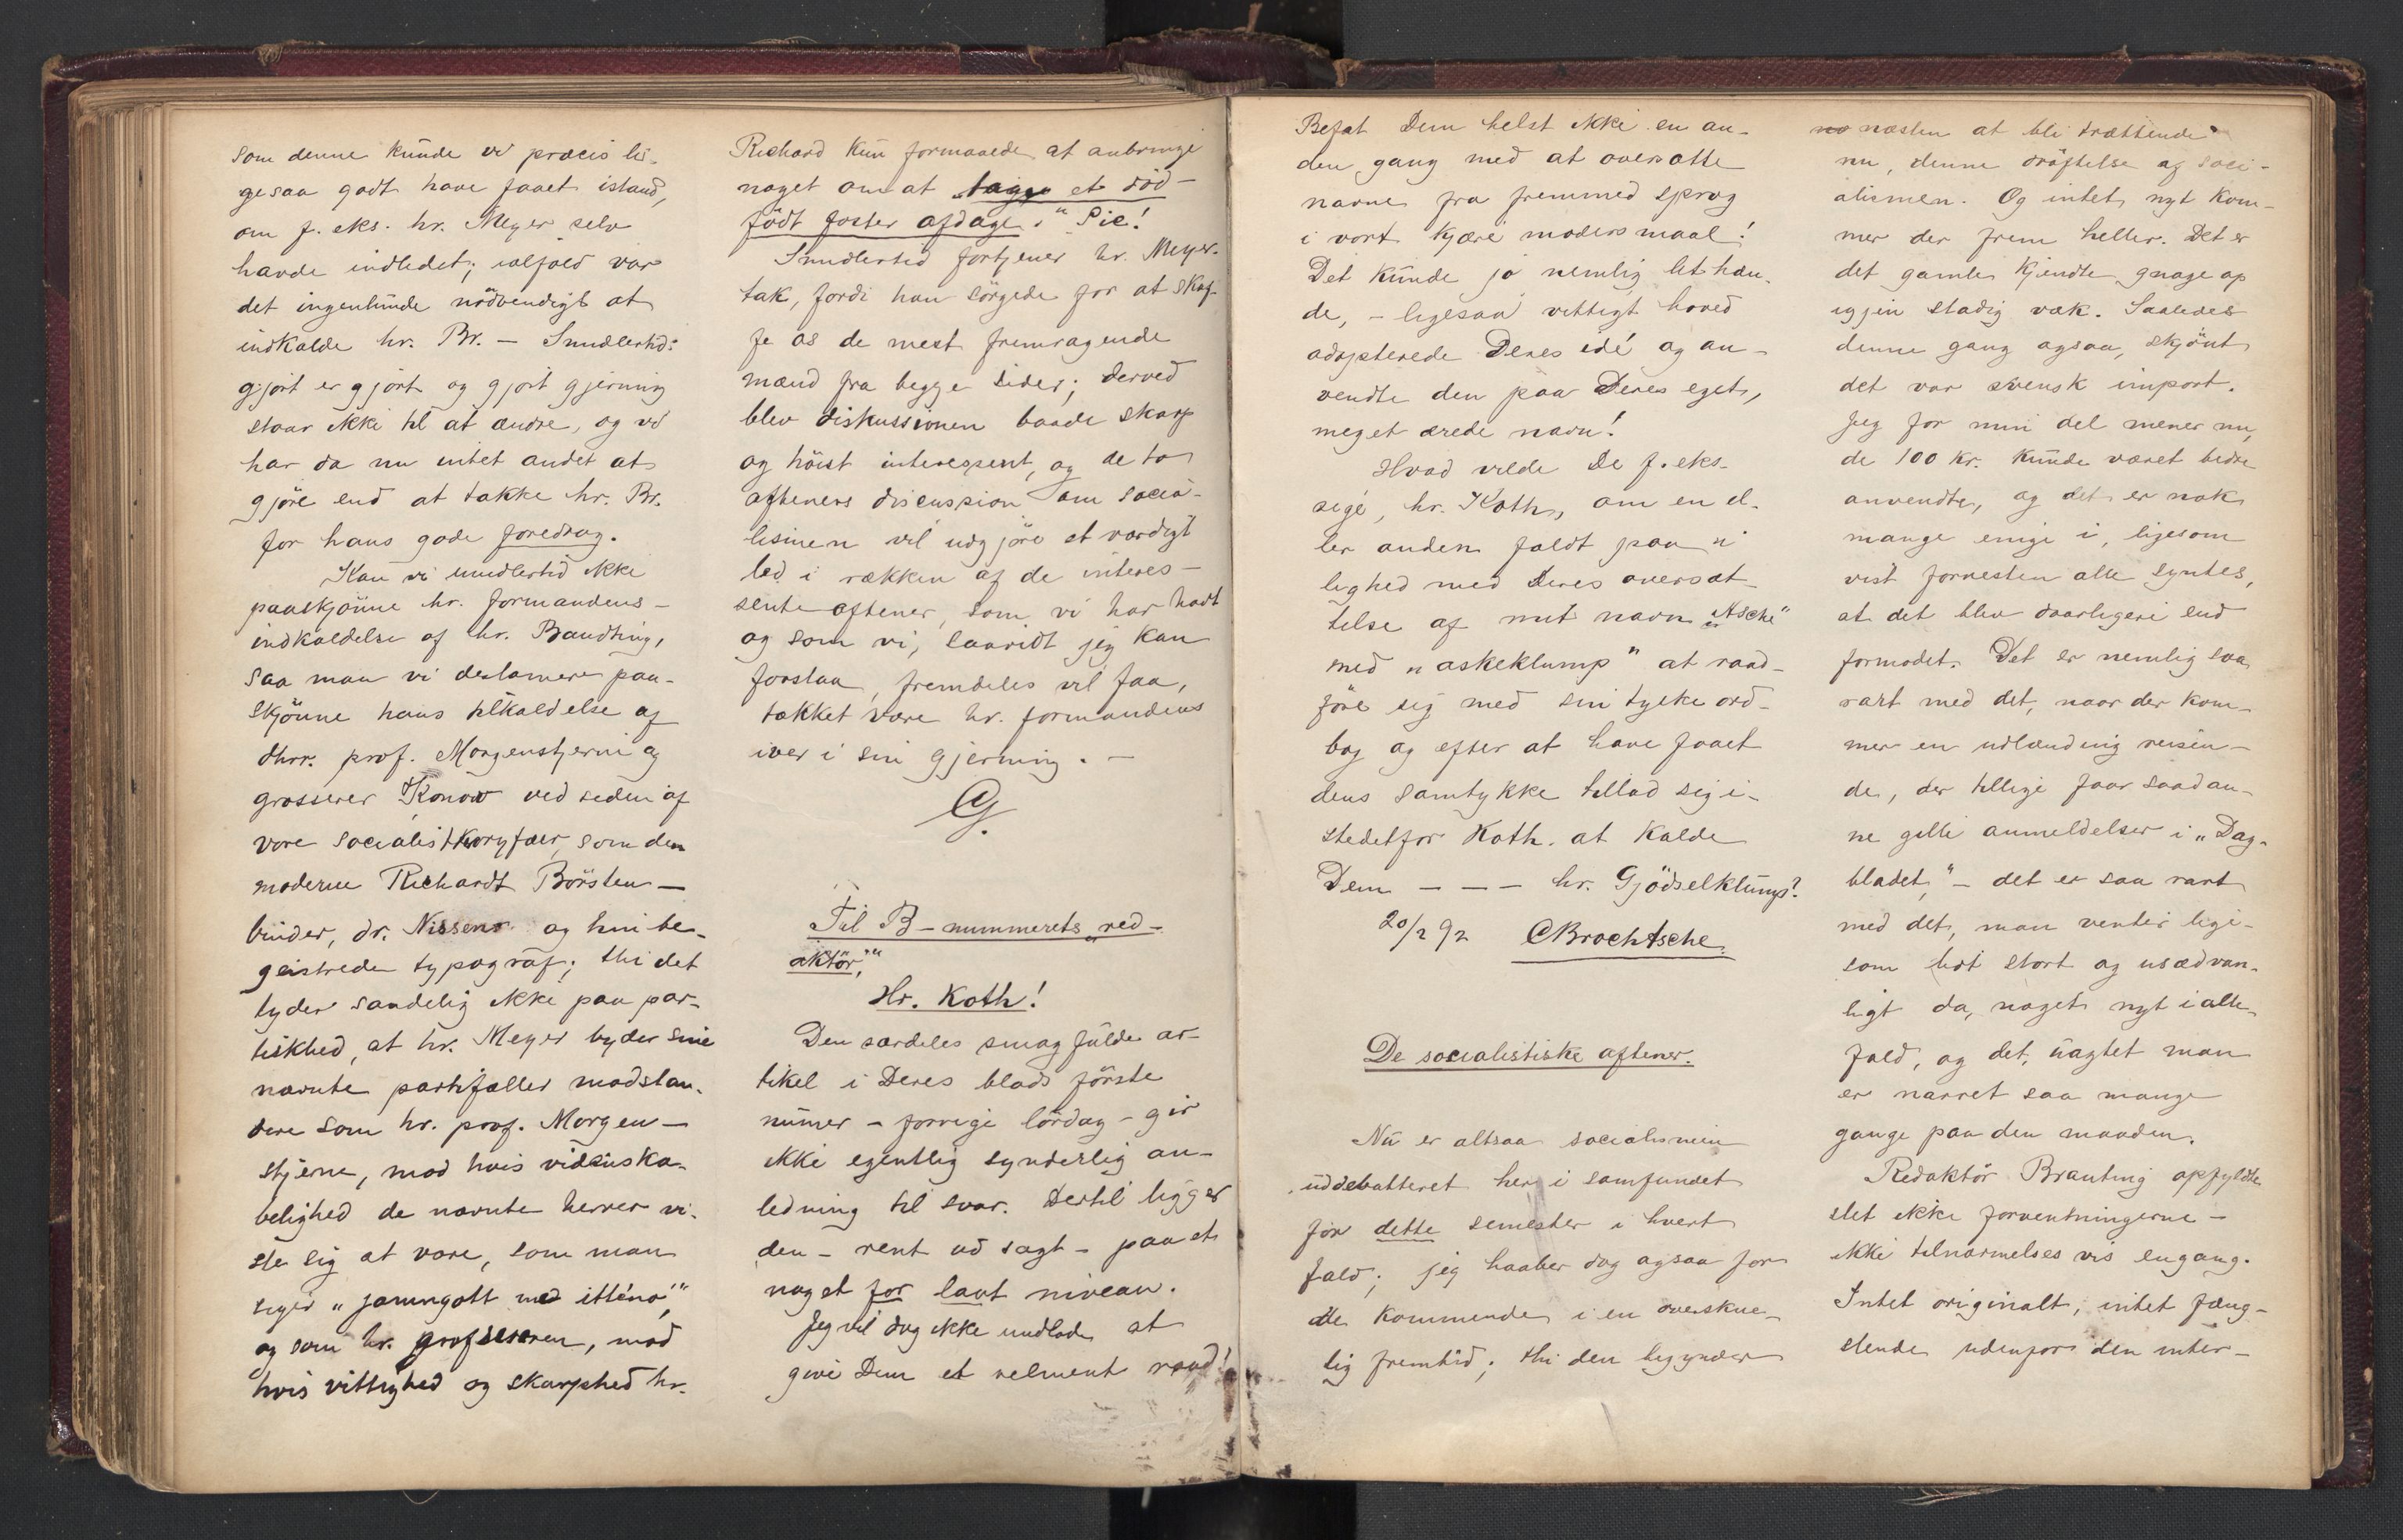 som denne kunde vi præcis li-
gesaa godt have faaet istand,
om f. eks. hr. Meyer selv
havde indledet; ialfald var
det ingenlunde nödvendigt at
indkalde hr. Br. — Imidlertid:
gjort er gjort og gjort gjerning
staar ikke til at ændre, og vi
har da nu intet andet at
gjöre end at takke hr. Br.
for hans gode foredrag.
Kan vi imidlertid ikke
paaskjönne hr. formandens
indkaldelse af hr. Brandting,
saa maa vi destomere paa-
skjönne hans tilkaldelse af
dhrr. prof. Morgenstjerne og
grosserer Konow ved siden af
vore socialistkoryfæer, som den
moderne Richardt Börsten-
binder, dr. Nissen og hin be-
geistrede typograf; thi det
tyder sandelig ikke paa par-
tiskhed, at hr. Meyer byder sine
nævnte partifæller modstan-
dere som hr. prof. Morgen-
stjerne, mod hvis videnska-
belighed de nævnte herrer vi-
ste sig at være, som man
siger „jamngott med itténo",
og som hr. grossereren, mod
hvis vittighed og skarphed hr.
Richard kun formaaede at anbringe
noget om at „tagge et död-
födt foster afdage." Sic!
Imidlertid fortjener hr. Meyer
tak, fordi han sörgede for at skaf-
fe os de mest fremragende
mænd fra begge sider; derved
blev diskussionen baade skarp
og höist interessent, og de to
afteners discussion om socia-
lismen vil udgjöre et værdigt
led i rækken af de interes-
sente aftener, som vi har havt
og som vi, saavidt jeg kan
forstaa, fremdeles vil faa,
takket være hr. formandens
iver i sin gjerning. —
G.
Til B-nummerets „red-
aktör".
Hr. Koth!
Den særdeles smagfulde ar-
tikel i Deres blads förste
numer - forrige lördag - gir
ikke egentlig synderlig an-
ledning til svar. Dertil ligger
den - rent ud sagt - paa et
noget for lavt niveau.
Jeg vil dog ikke undlade at
give Dem et velment raad!
Befat Dem helst ikke en an-
den gang med at oversætte
navne fra fremmed sprog
i vort kjære modersmaal!
Det kunde jo nemlig let hæn-
de, - ligesaa vittigt hoved
adopterede Deres idé og an-
vendte den paa Deres eget,
meget ærede navn!
Hvad vilde De f. eks.
sige, hr. Koth, om en el-
ler anden faldt paa i
lighed med Deres oversæt-
telse af mit navn „Asche"
med „askeklump" at raad-
före sig med sin tyske ord-
bog og efter at have faaet
dens samtykke tillod sig i-
stedetfor Koth at kalde
Dem — — — hr. Gjödselklump?
20/2 92 CBrochAsche.
De socialistiske aftener.
Nu er altsaa socialismen
uddebatteret her i samfundet
for dette semester i hvert
fald; jeg haaber dog ogsaa for
de kommende i en overskue-
lig fremtid; thi den begynder
næsten at bli trættende
nu, denne dröftelse af soci-
alismen. Og intet nyt kom-
mer der frem heller. Det er
det gamle kjendte gnage op
igjen stadig væk. Saaledes
denne gang ogsaa, skjönt
det var svensk import.
Jeg for min del mener nu,
de 100 kr. kunde været bedre
anvendte, og det er nok
mange enige i, ligesom
vist forresten alle syntes,
at det blev daarligere end
formodet. Det er nemlig saa
rart med det, naar der kom-
mer en udlænding reisen-
de, der tillige faar saadan-
ne gille anmeldelser i „Dag-
bladet," - det er saa rart
med det, man venter lige-
som lidt stort og usædvan-
ligt da, noget nyt i alle-
fald, og det, uagtet man
er narret saa mange
gange paa den maaden.
Redaktör Branting opfyldte
slet ikke forventningerne -
ikke tilnærmelsesvis engang.
Intet originalt, intet fæng-
slende udenfor den inter-